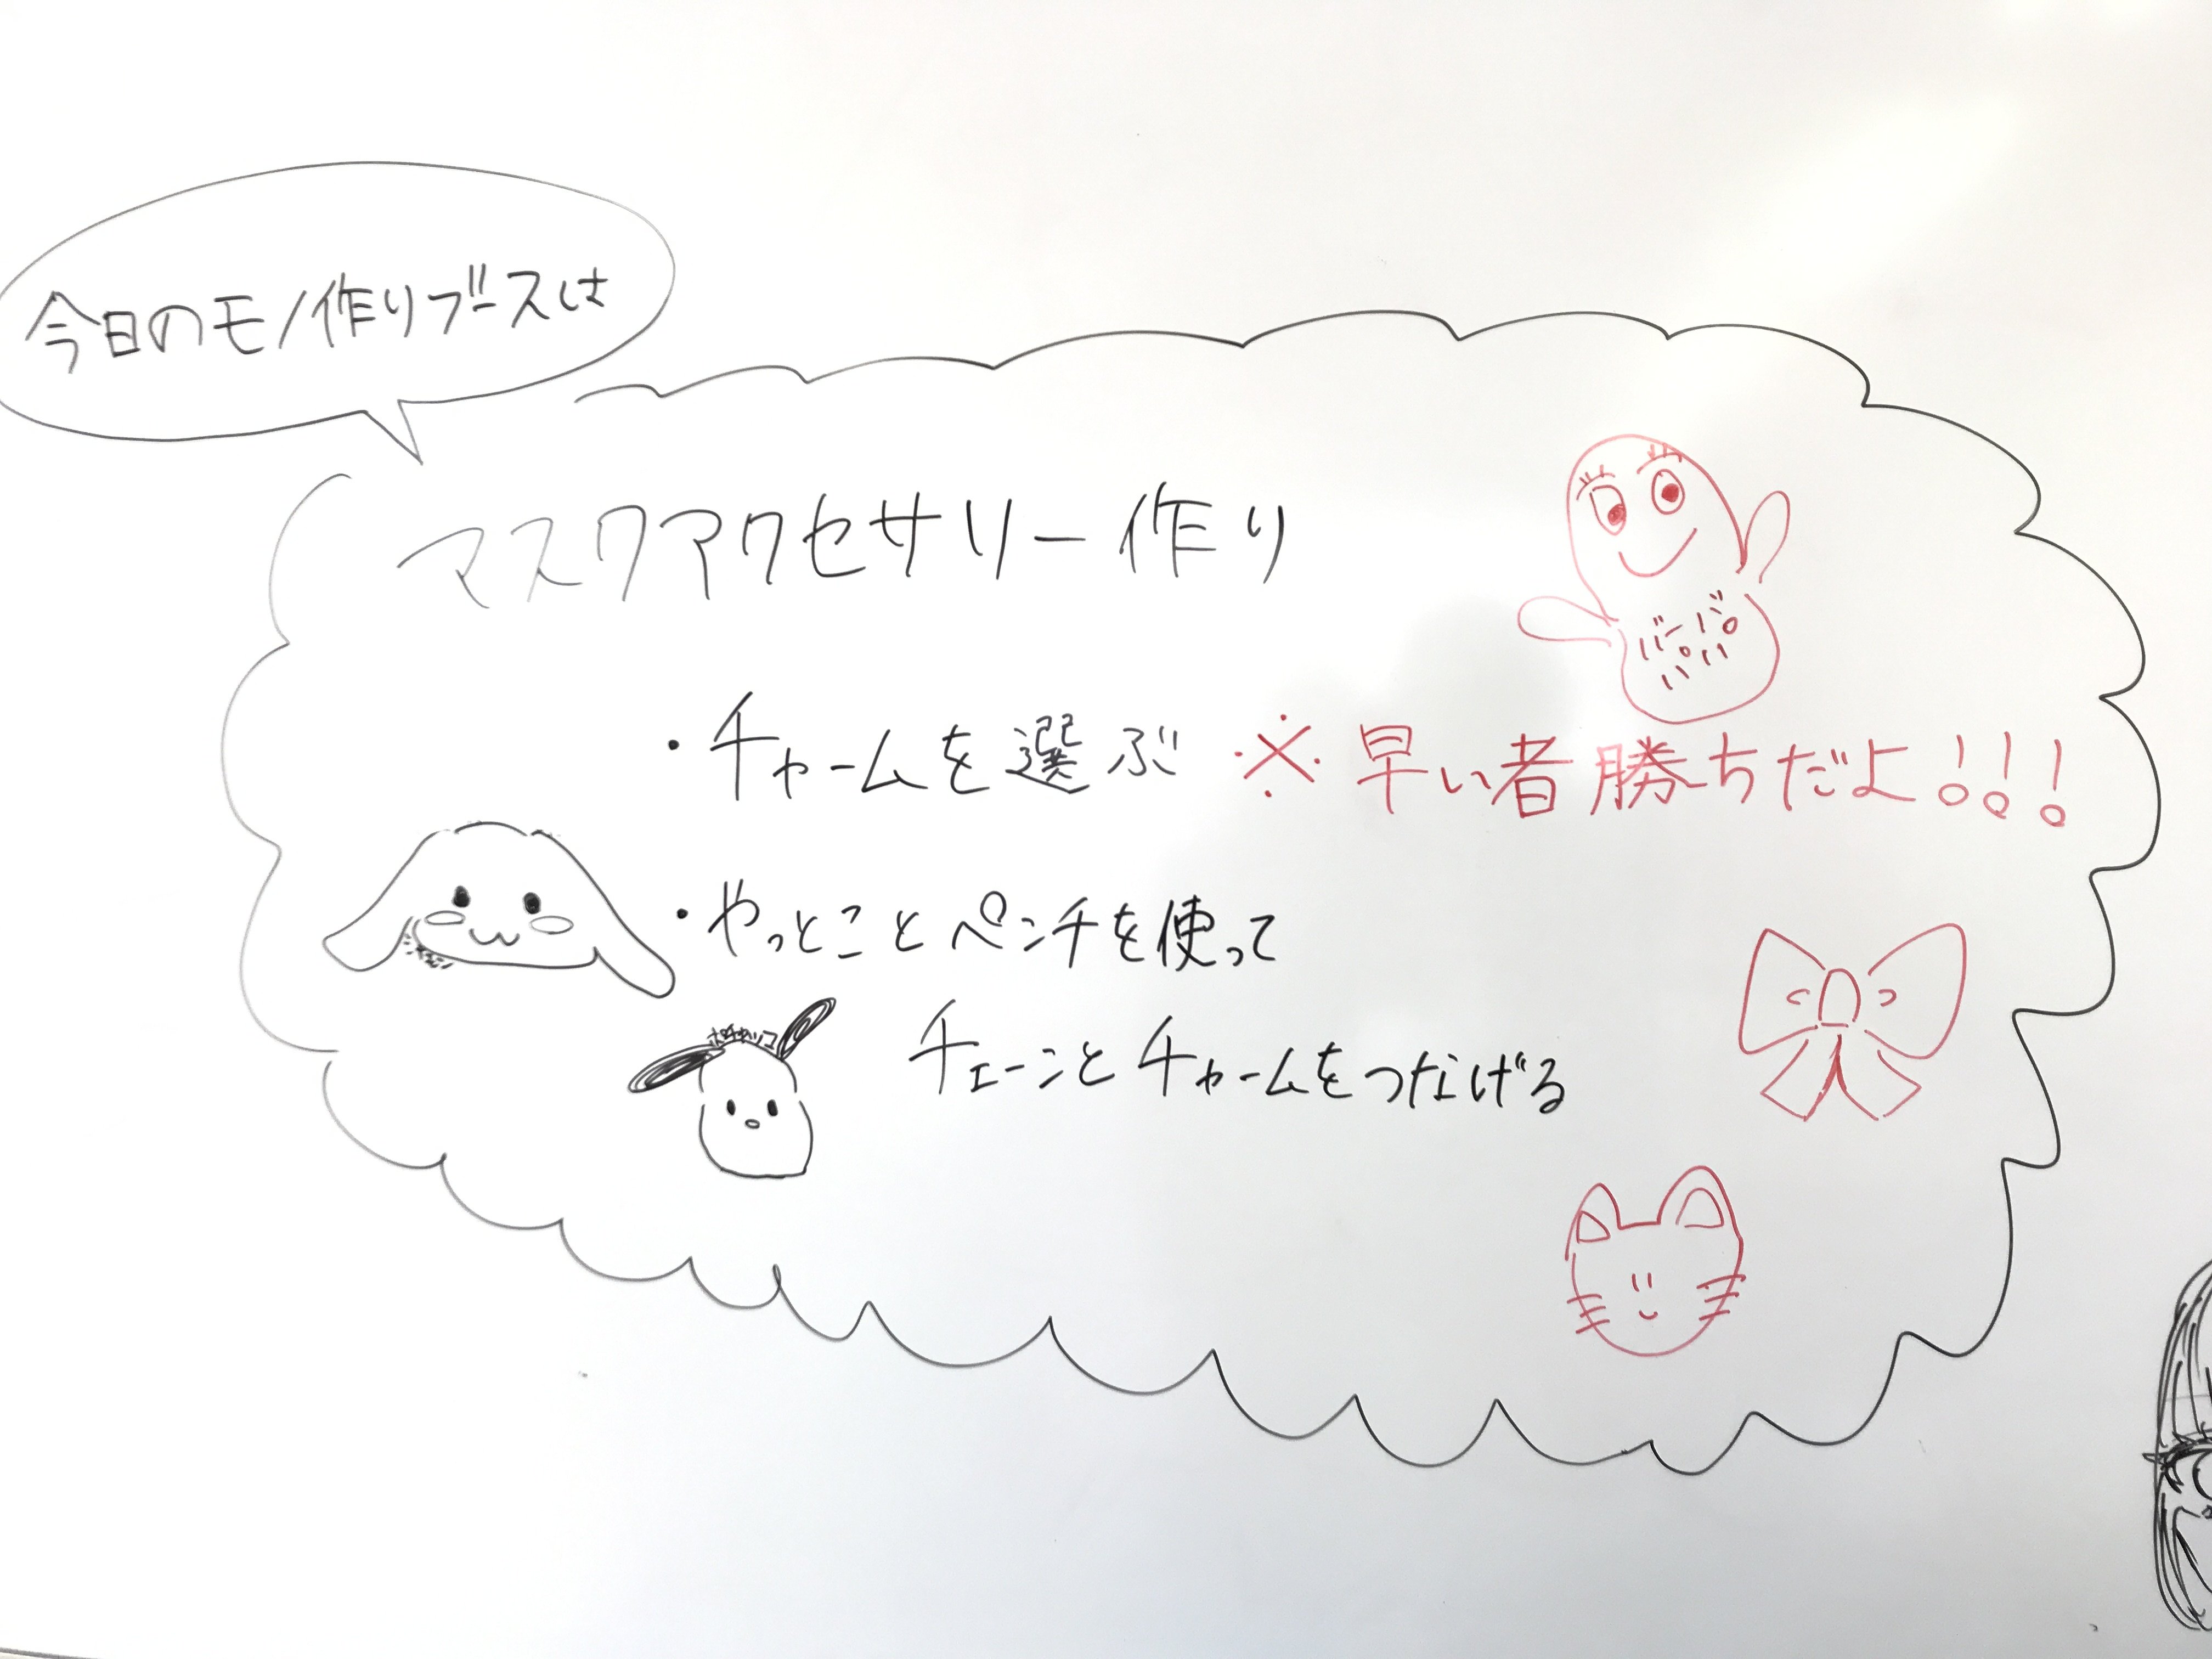 今日のモノ作りブースは
マスクアクセサリー作り
バーバ
パパ
・チャームを選ぶ ※早い者勝ちだよ!!!
・やっとことペンチを使って
ポチャッコ
チェーンとチャームをつなげる